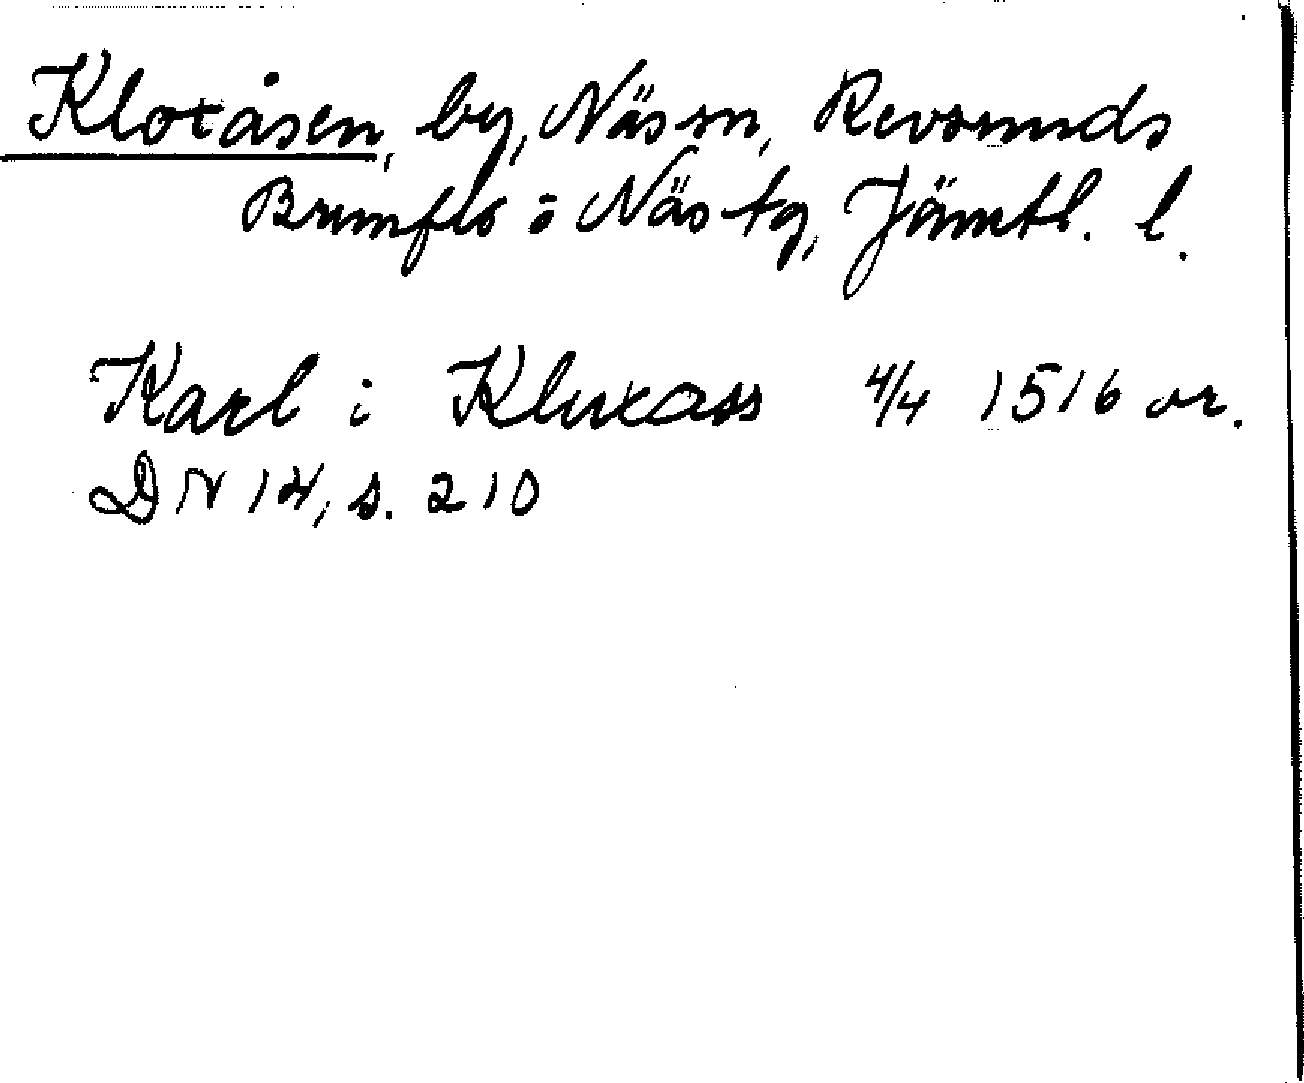 Kloxåsen, by, Näs sn, Revsunds
Brunflo o Näs tg, Jämtl. l.
Karl i Kluxass 4/4 1516 or.
DN 14, s. 210